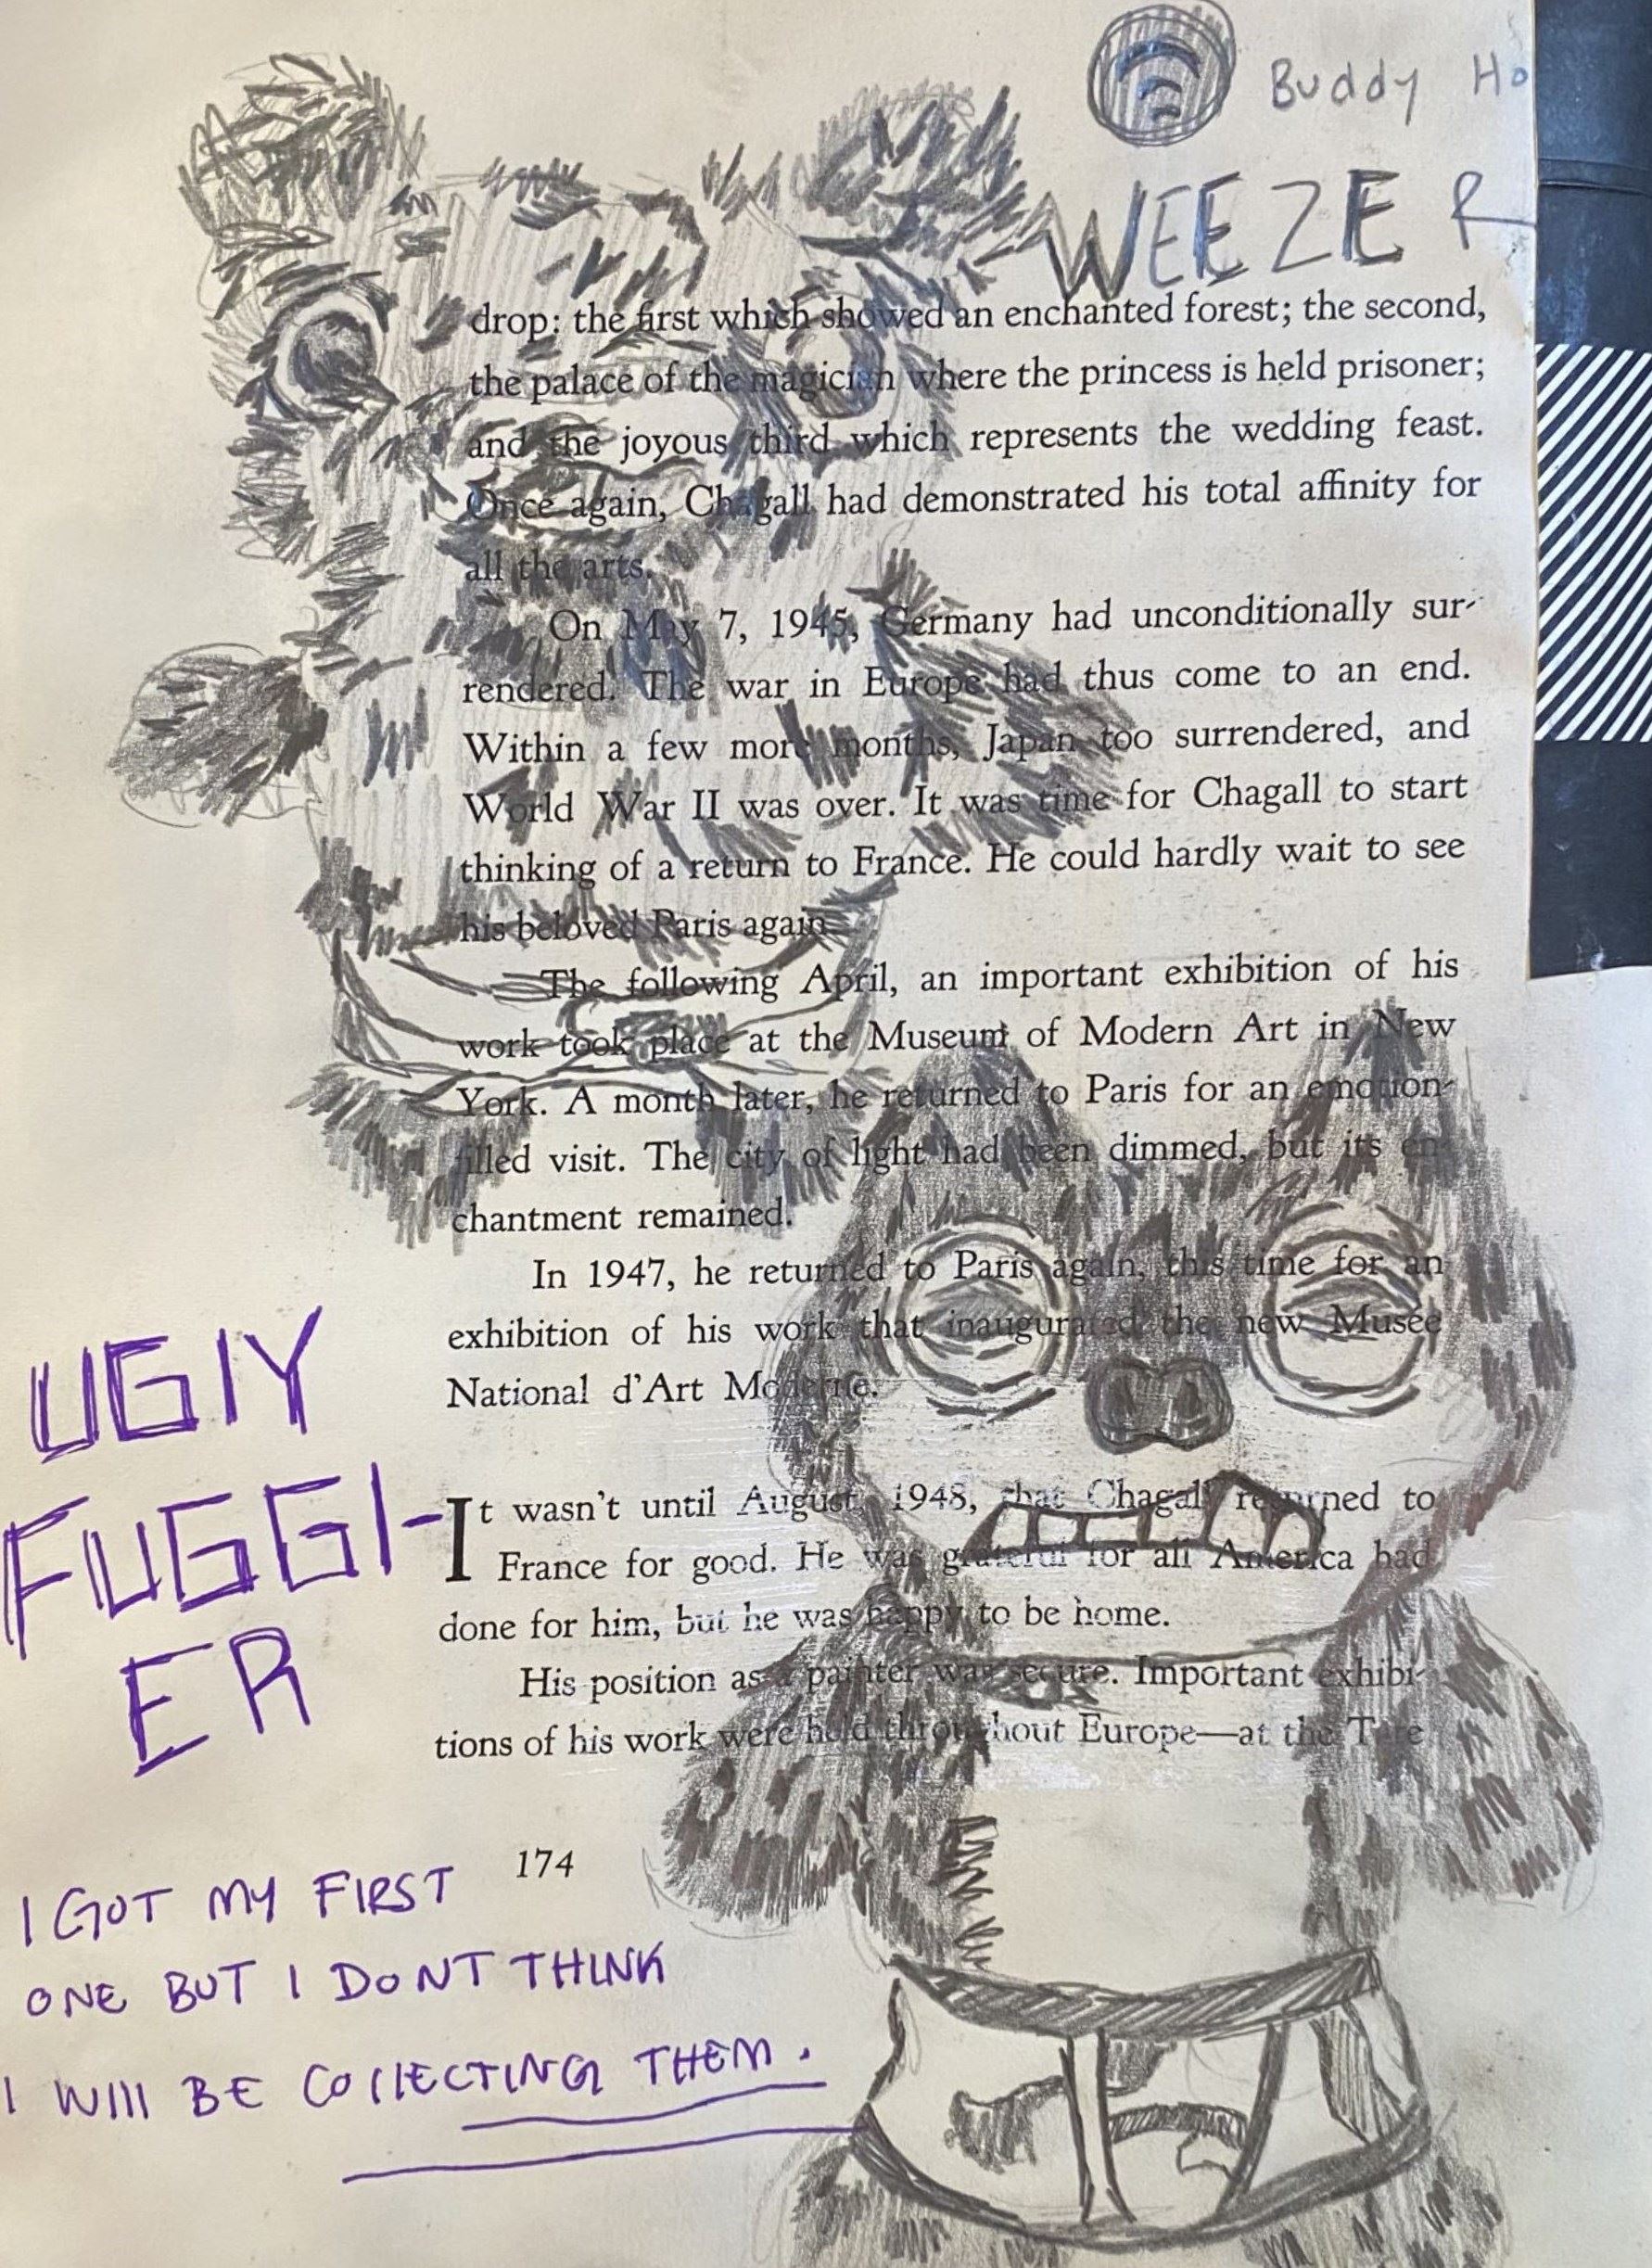 Buddy Ho
WEEZER
drop: the first which showed an enchanted forest; the second,
the palace of the magician where the princess is held prisoner;
and the joyous third which represents the wedding feast.
Once again, Chagall had demonstrated his total affinity for
all the arts.
On May 7, 1945, Germany had unconditionally sur-
rendered. The war in Europe had thus come to an end.
Within a few more months, Japan too surrendered, and
World War II was over. It was time for Chagall to start
thinking of a return to France. He could hardly wait to see
his beloved Paris again.
The following April, an important exhibition of his
work took place at the Museum of Modern Art in New
York. A month later, he returned to Paris for an emotion-
filled visit. The city of light had been dimmed, but its en-
chantment remained.
In 1947, he returned to Paris again, this time for an
exhibition of his work that inaugurated the new Musée
National d'Art Moderne.
It wasn't until August, 1948, that Chagall returned to
France for good. He was grateful for all America had
done for him, but he was happy to be home.
His position as a painter was secure. Important exhibi-
tions of his work were held throughout Europe—at the Tate
174
UGlY
FUGGI-
ER
I GOT MY FIRST
ONE BUT I DONT THINK
I WIll BE COllECTING THEM.